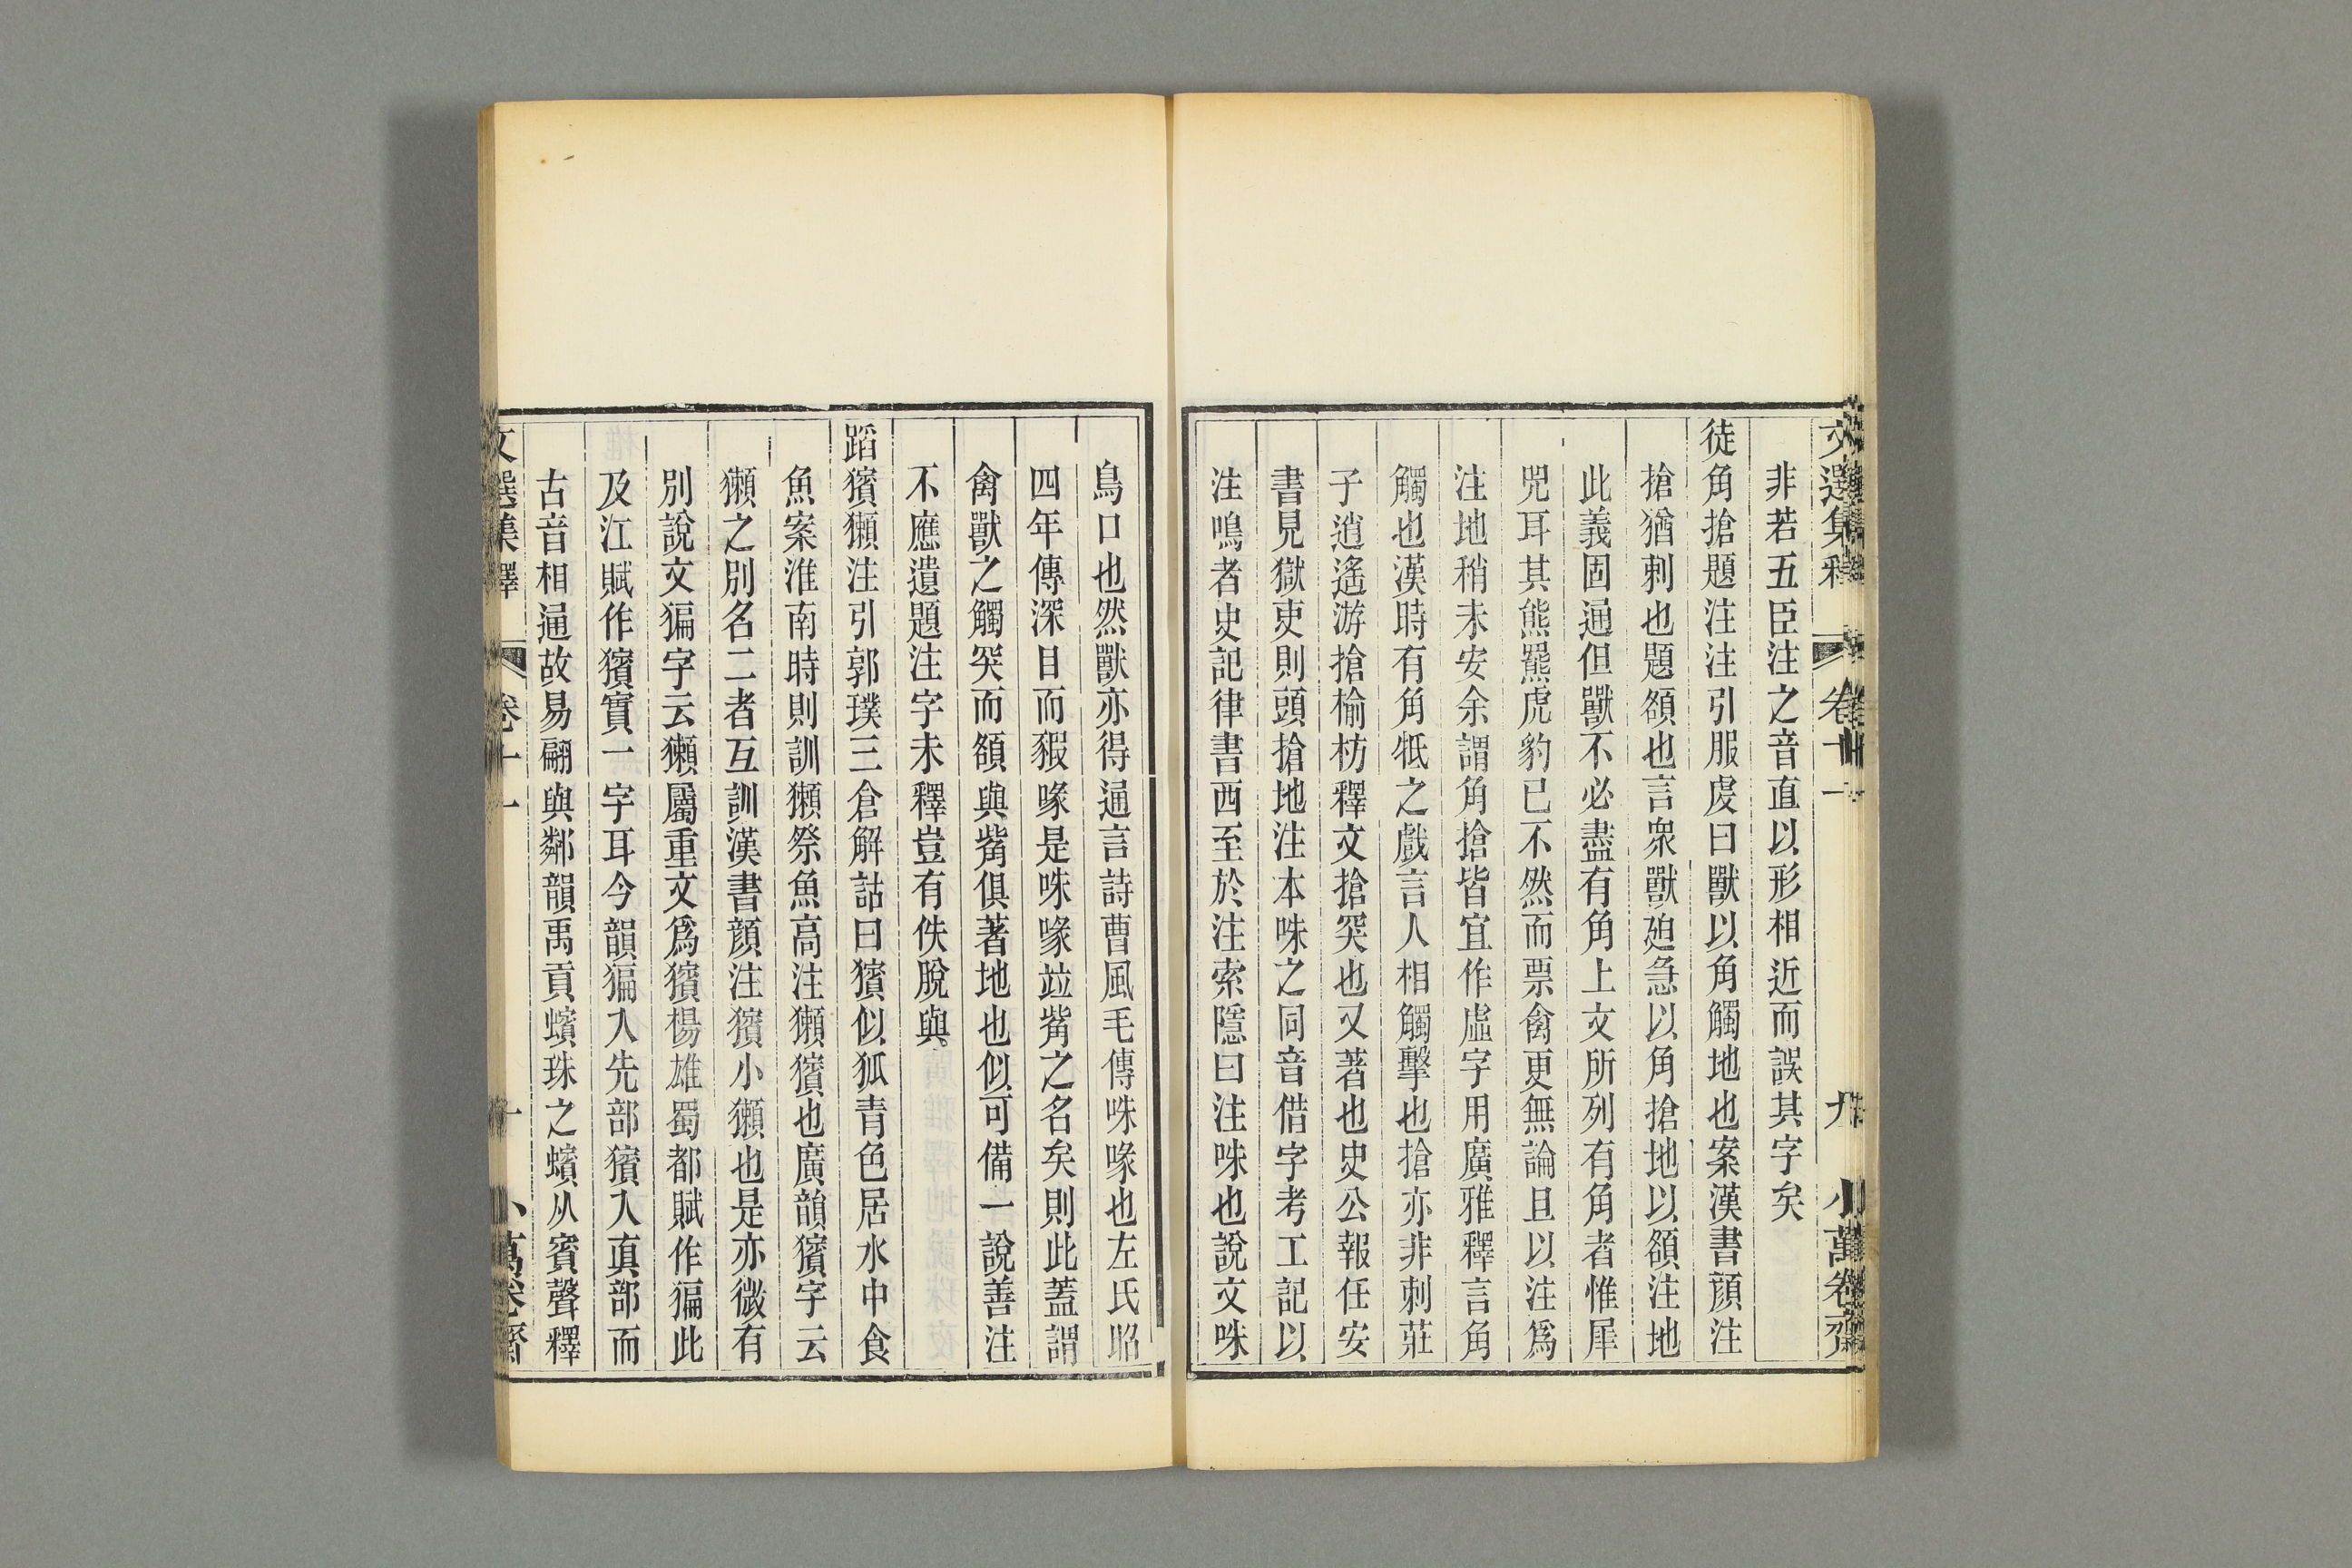 文選集釋 卷十一 九 小萬卷齋
非若五臣注之音直以形相近而誤其字矣
徒角搶題注注引服虔曰獸以角觸地也案漢書顔注
搶猶刺也題頟也言衆獸廹急以角搶地以頟注地
此義固通但獸不必盡有角上文所列有角者惟犀
兕耳其熊羆虎豹已不然而票禽更無論且以注爲
注地稍未安余謂角搶皆宜作虛字用廣雅釋言角
觸也漢時有角牴之戲言人相觸擊也搶亦非刺莊
子逍遙游搶榆枋釋文搶突也又著也史公報任安
書見獄吏則頭搶地注本咮之同音借字考工記以
注鳴者史記律書西至於注索隱曰注咮也說文咮
鳥口也然獸亦得通言詩曹風毛傳咮喙也左氏昭
四年傳深目而豭喙是咮喙竝觜之名矣則此蓋謂
禽獸之觸突而頟與觜俱著地也似可備一說善注
不應遺題注字未釋豈有佚脫與
蹈獱獺注引郭璞三倉解詁曰獱似狐青色居水中食
魚案淮南時則訓獺祭魚高注獺獱也廣韻獱字云
獺之別名二者互訓漢書顔注獱小獺也是亦微有
別說文猵字云獺屬重文爲獱楊雄蜀都賦作猵此
及江賦作獱實一字耳今韻猵入先部獱入真部而
古音相通故易翩與鄰韻禹貢蠙珠之蠙从賓聲釋
文選集釋 卷十一 十 小萬卷齋